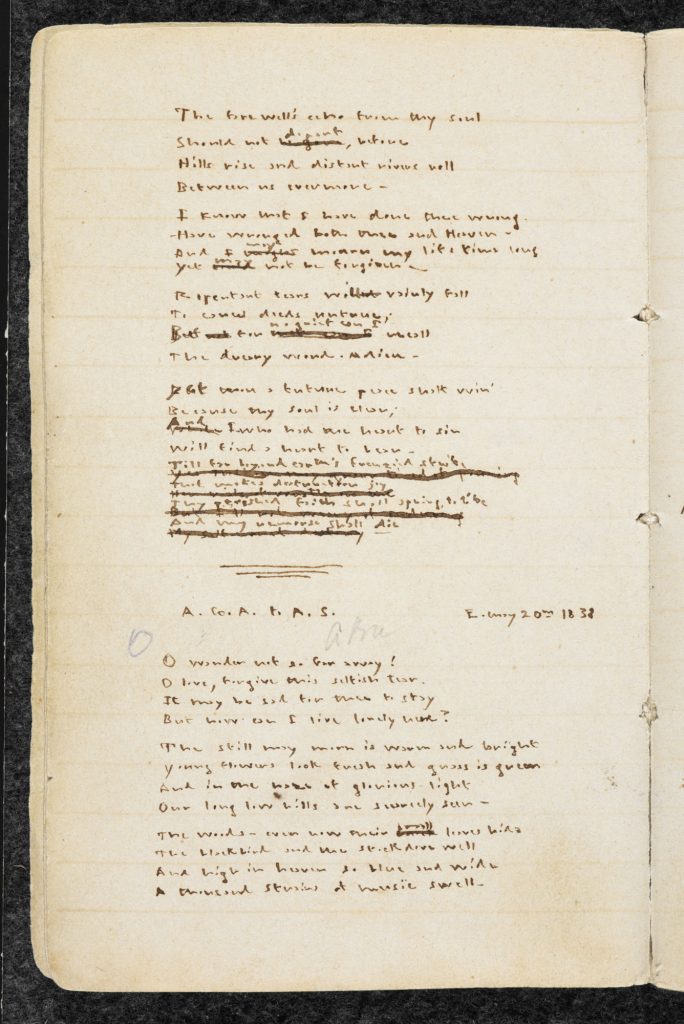 The farewell's echo from thy soul
Should not depart, before
Hills rise and distant rivers roll
Between us evermore -
I know that I have done thee wrong -
Have wronged both thee and Heaven -
And I may mourn my lifetime long
Yet may not be forgiven -
Repentant tears will vainly fall
To cancel deeds untrue;
But for no grief can I recall
The dreary word - Adieu -
Yet thou a future peace shalt win
Because thy soul is clear;
And I who had the heart to sin
Will find a heart to bear -
Till far beyond earth's frenzied strife
That makes destruction joy
Thy perished faith shall spring to life
And my remorse shall die
A. G. A. to A. S.
E. May 20th 1838
O wander not so far away!
O love, forgive this selfish tear.
It may be sad for thee to stay
But how can I live lonely here?
The still may morn is warm and bright
Young flowers look fresh and grass is green
And in the haze of glorious light
Our long low hills are scarcely seen -
The woods - even now their small leaves hide
The blackbird and the stockdove well
And high in heaven so blue and wide
A thousand strains of music swell -